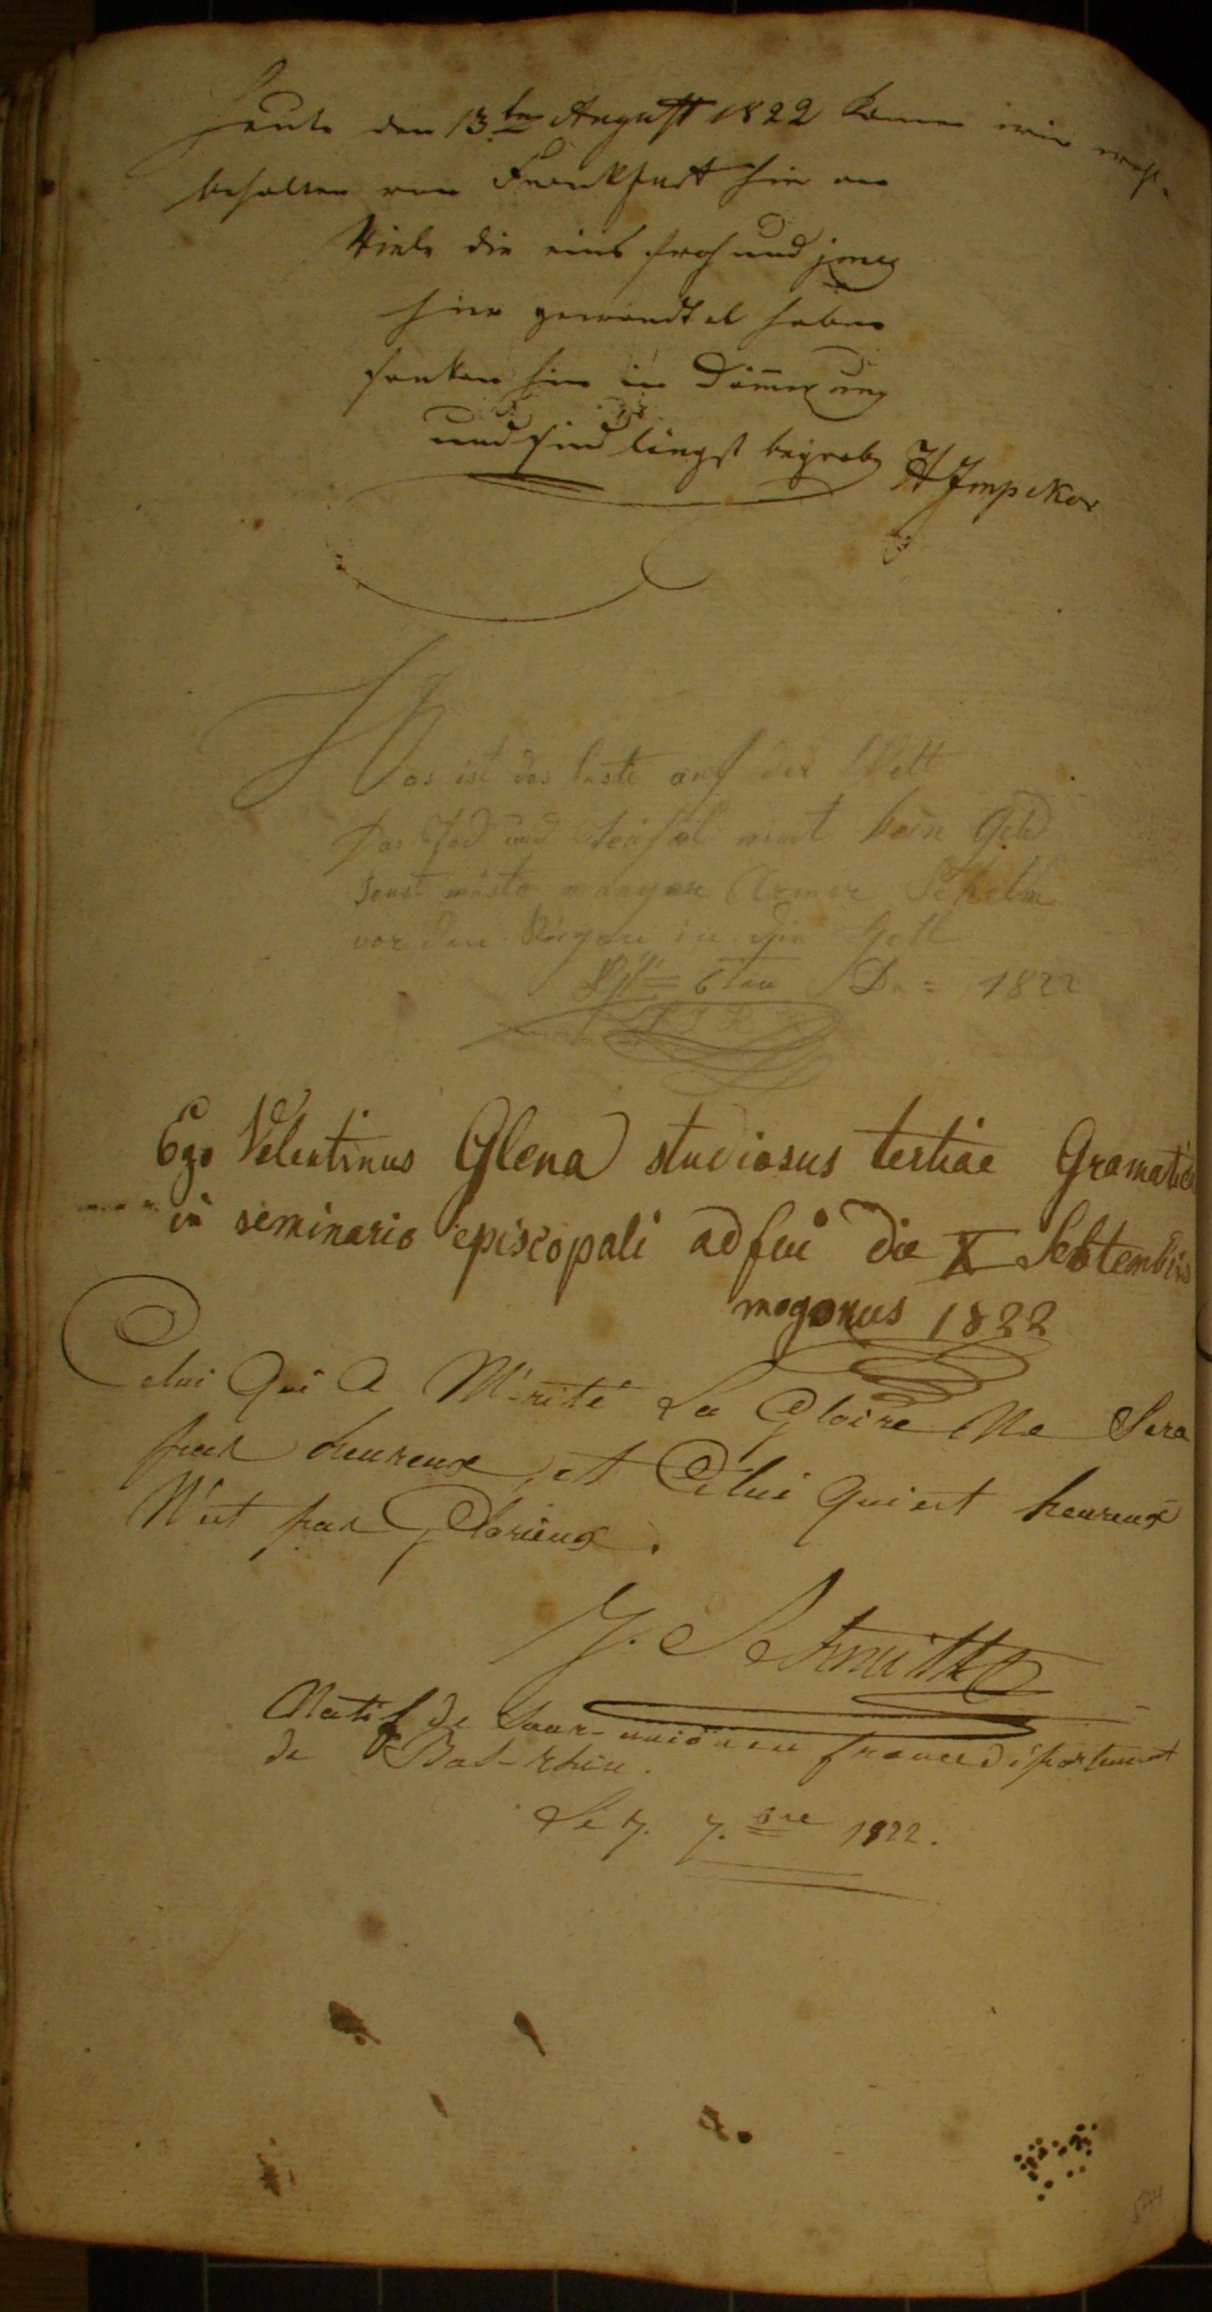 Heute den 13ten August 1822 kamen wir wohl-
behalten von Frankfurt hier an
Viele die einst froh und jung
hier gewandtel haben
sanken hin in Dämmerung
und sind längst begraben H Impekov
Was ist das beste auf der Welt
Das Tod und Teufel nimt kein Geld
sonst müste mancher Armer Schelm
vor den Reichen in die Hell
6ten 1822
Ego Velentinus Glena studiosus tertiae Gramatic
in seminario episcopali adfui die X Sebtembris
mogonus 1822
Celui Qui a Mérité La Gloire Ne Sera
pas heureux, et Celui Qui est heureux
N'est pas Glorieux.
J. Schmitt
Natif de Saar-union en france département
de Bas-rhin.
Le 7. 7.bre 1822.